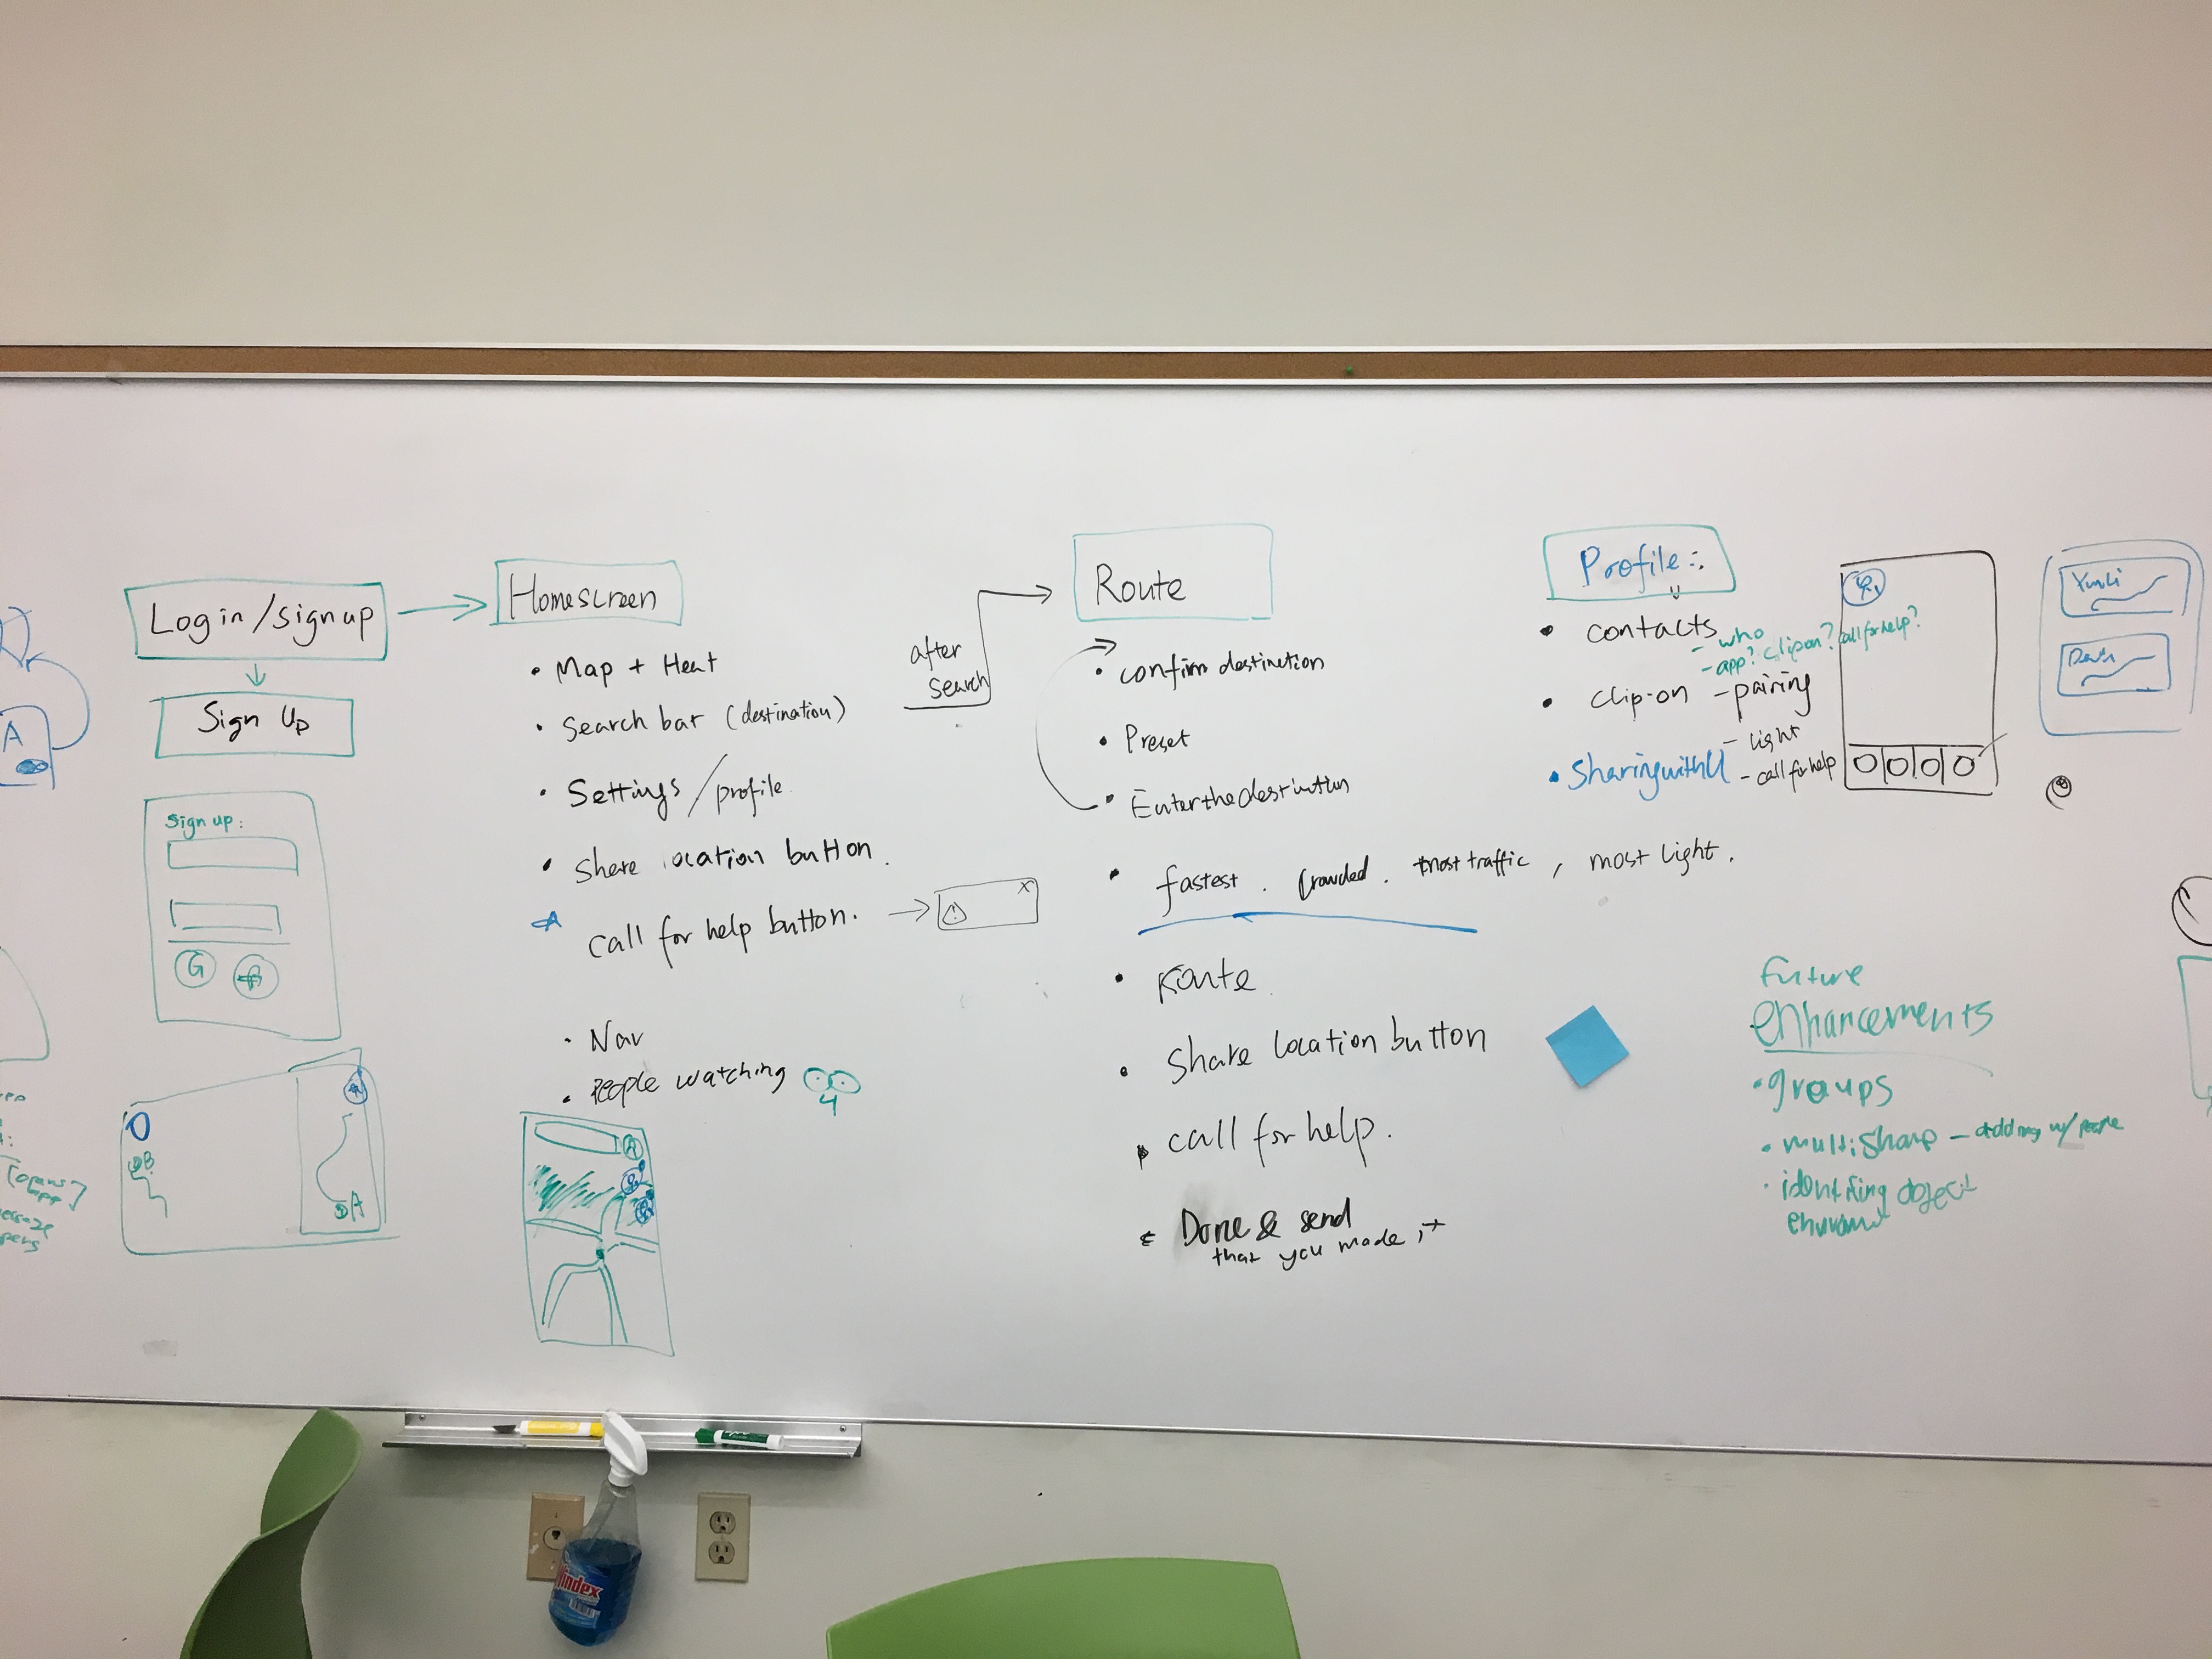 Log in / sign up
Sign Up
Sign up:
G
B
A
A
Homescreen
• Map + Heat
• Search bar (destination)
• Settings / profile
• Share location button.
call for help button.
X
!
• Nav
• People watching
after
search
Route
• confirm destination
• Preset
• Enter the destination
• fastest. Crowded. most traffic, most light.
• Route
• Share location button
• call for help.
• Done & send
that you made it
Profile:
• contacts
- who
- app? clip on? call for help?
• clip-on - pairing
- light
- call for help
• Sharing with U
Yunli
future
enhancements
• groups
• multi sharp - adding w/ people
• identifing object
Windex